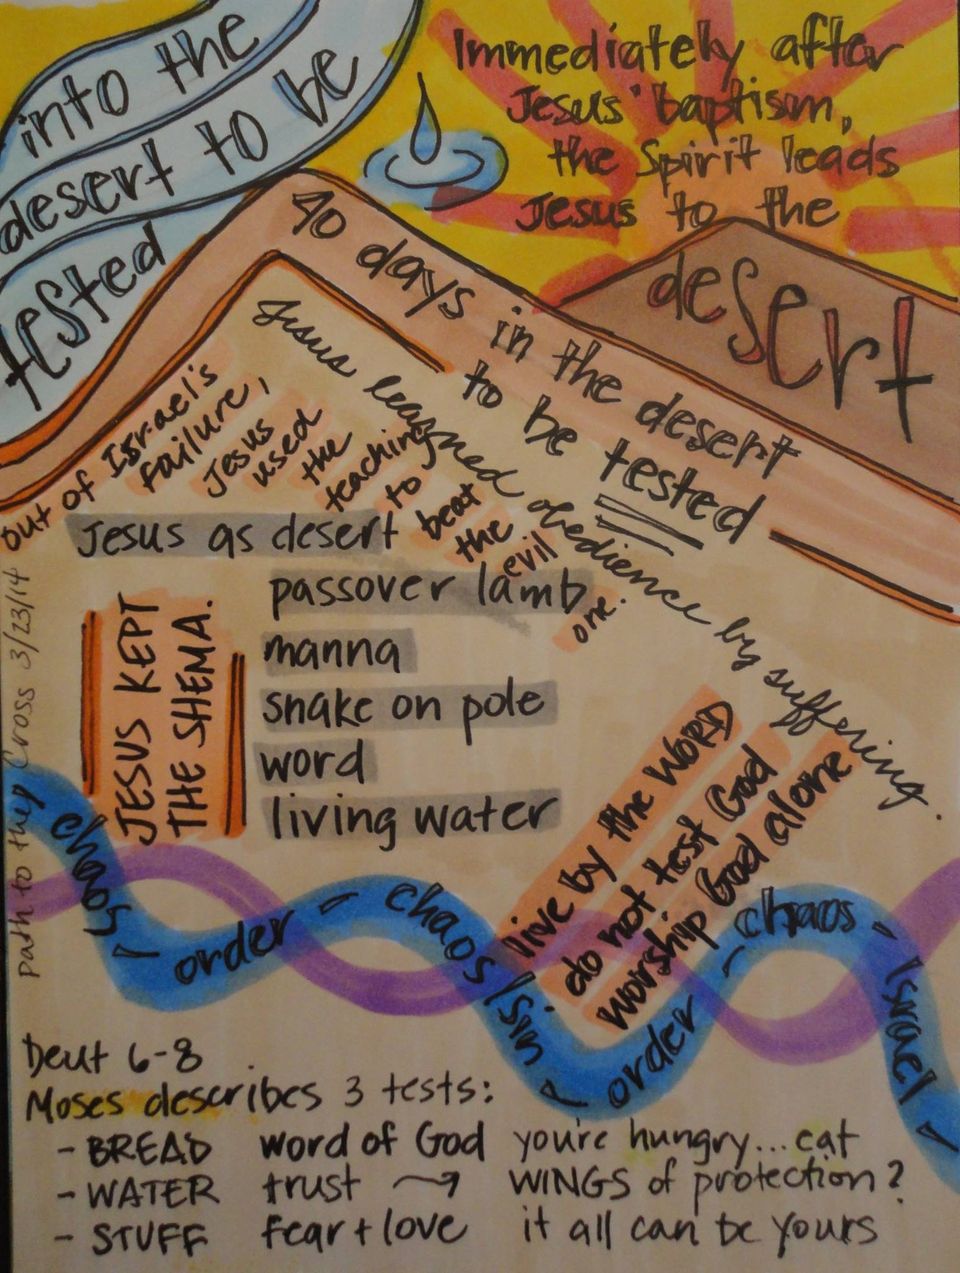 into the
desert to be
tested
Immediately after
Jesus' baptism,
the Spirit leads
Jesus to the
desert
40 days in the desert
to be tested
Jesus learned obedience by suffering.
out of Israel's
failure,
Jesus
used
the
teaching
to
beat
the
evil
one.
Jesus as desert
passover lamb
manna
snake on pole
word
living water
JESUS KEPT
THE SHEMA.
path to the Cross 3/23/14
live by the WORD
do not test God
worship God alone
chaos - order - chaos / sin - order - chaos - Israel -
Deut 6-8
Moses describes 3 tests:
- BREAD word of God you're hungry... eat
- WATER trust → WINGS of protection?
- STUFF fear + love it all can be yours